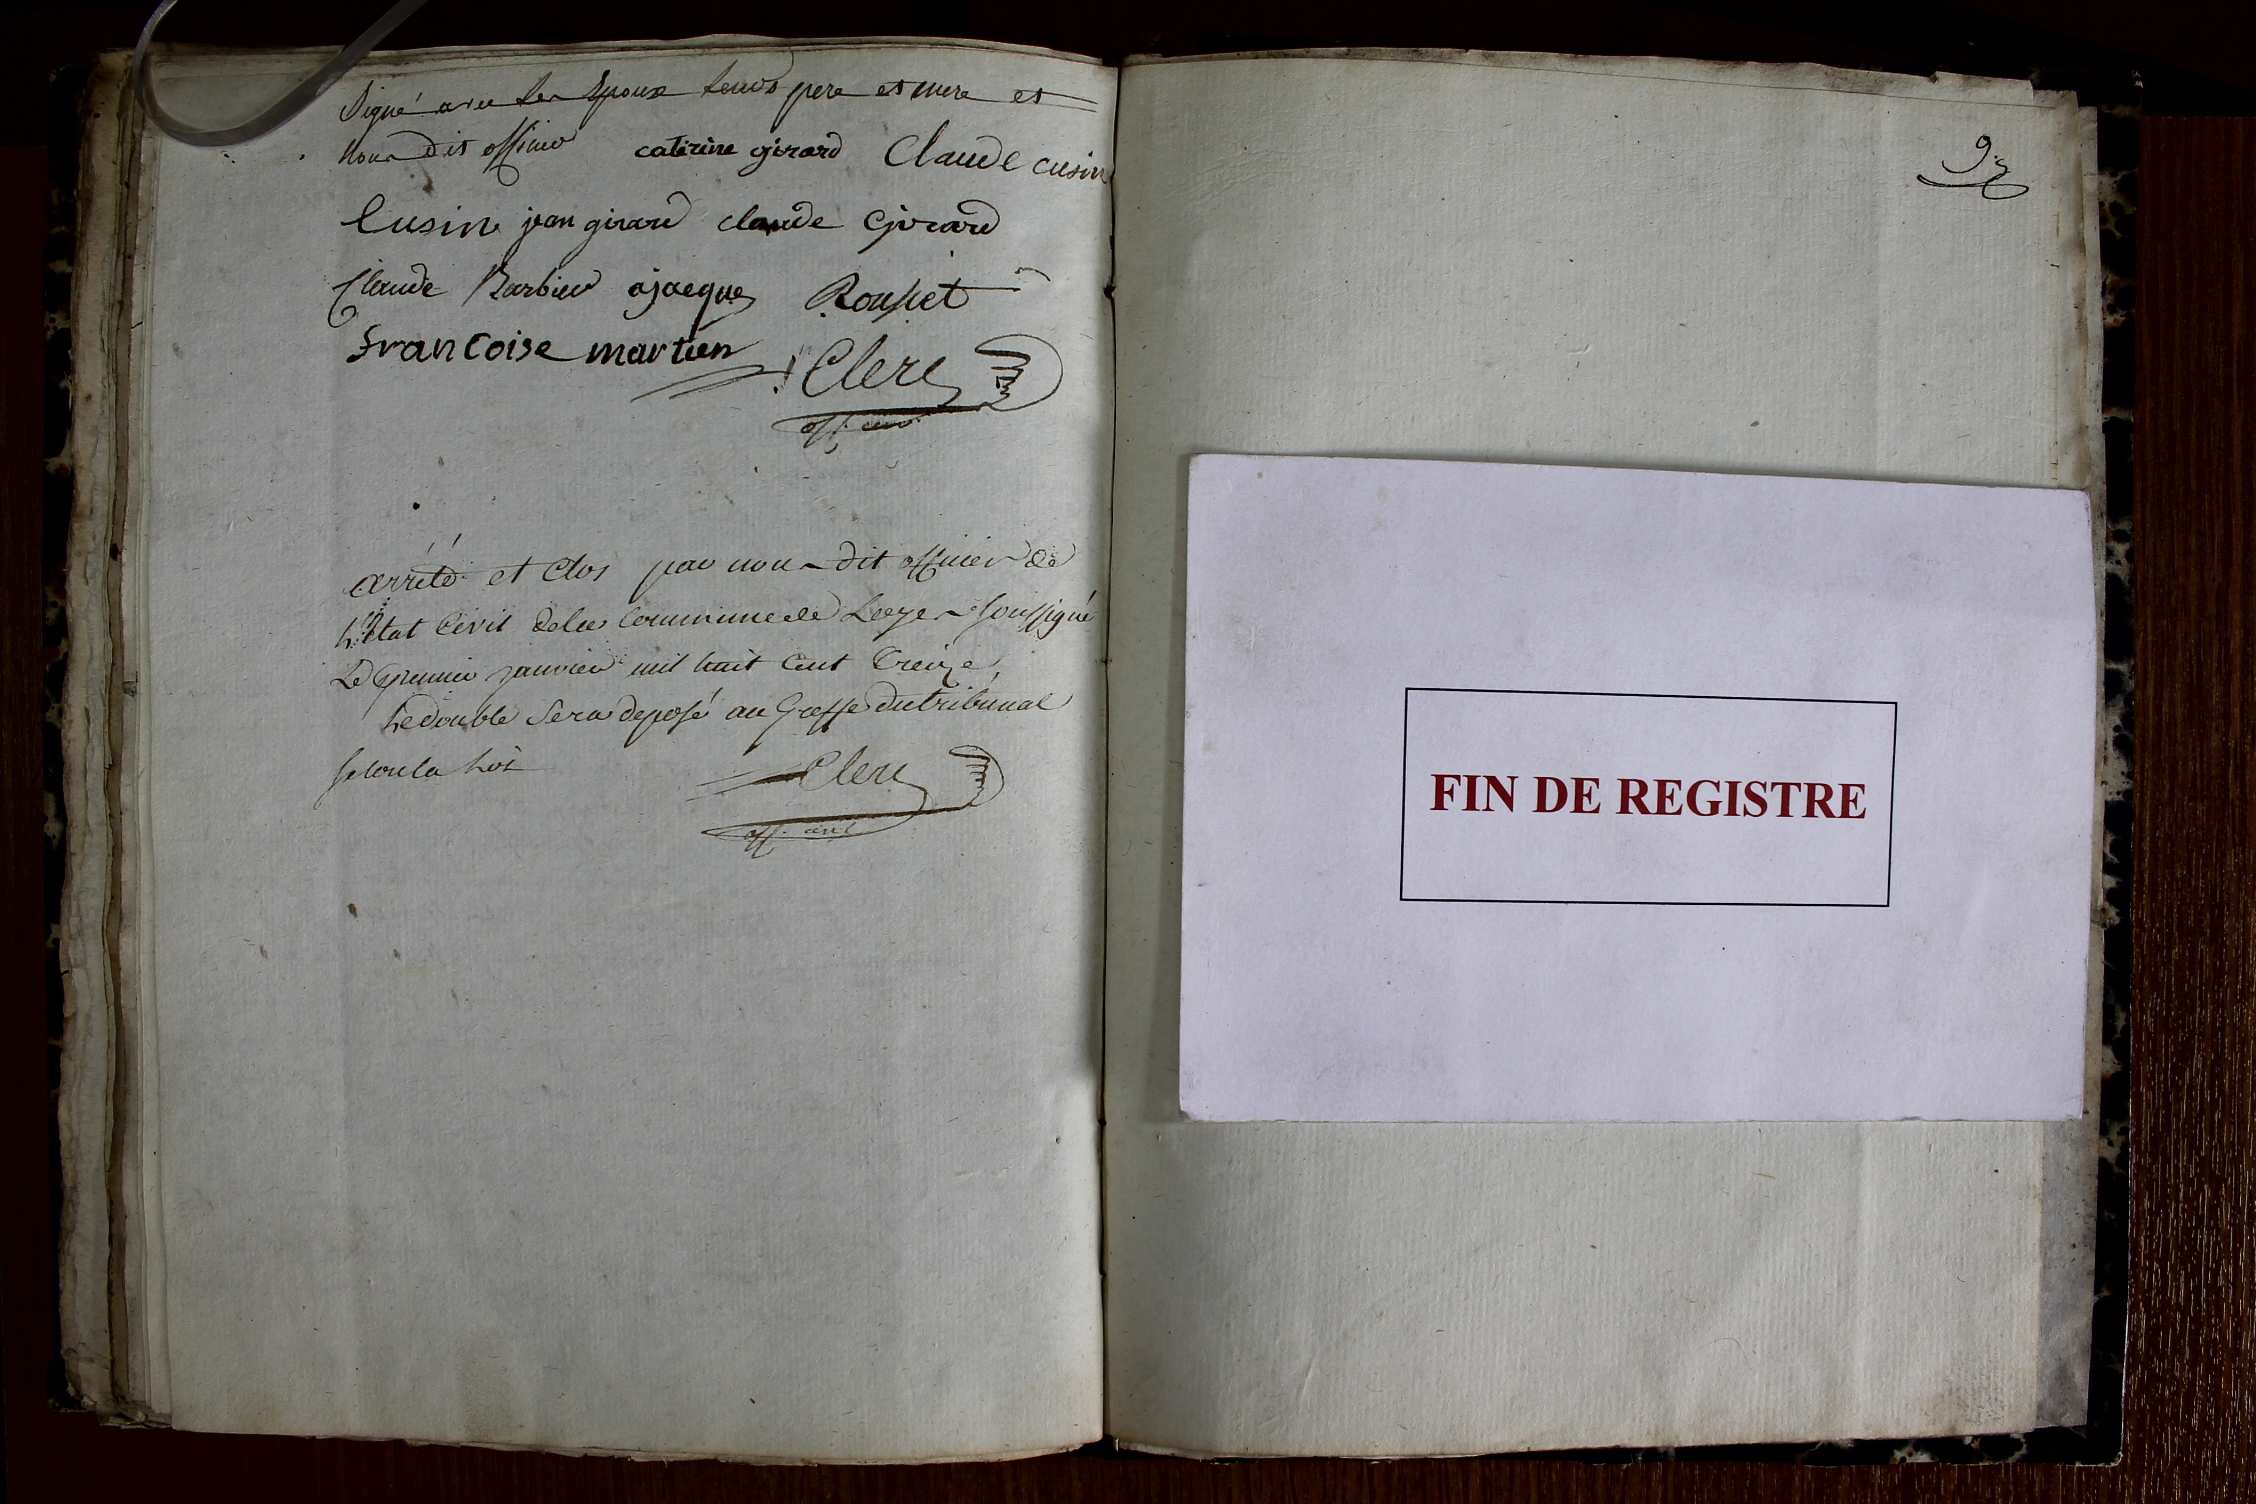 Signé avec les Epoux leurs pere et mere et
nous dit officier caterine girard Claude cusin
Cusin jean girard claude Girard
Claude Barbier ajacque Rousset
francoise martien Clerc
off. civil
arrêté et Clos par nous dit officier de
l'Etat Civil de la Commune de soussigné
Le premier janvier mil huit cent treize
Le double sera deposé au Greffe du tribunal
selon la Loi Clerc
off. civil
FIN DE REGISTRE